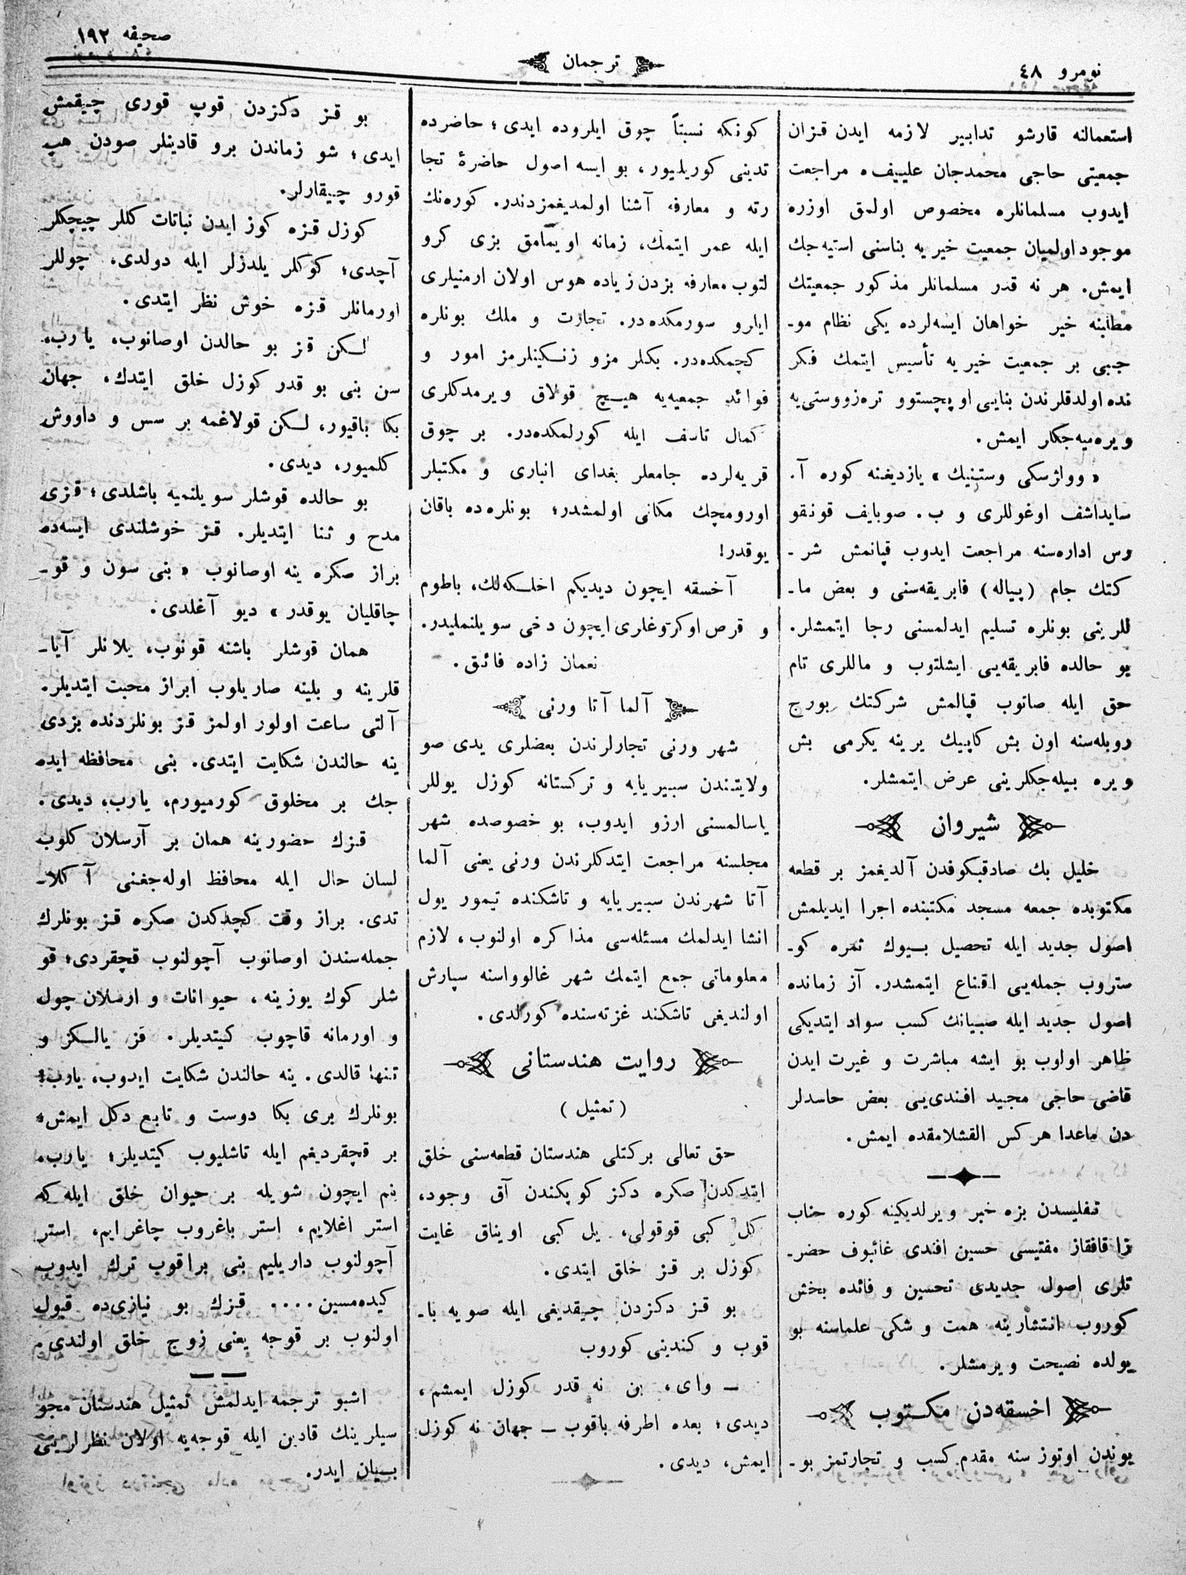 صحیفه ١٩٢
ترجمان
نومرو ٤٨
استعمالنه قارشو تدابیر لازمه ایدن قزان
جمعیتی حاجی محمدجان علییفه مراجعت
ایدوب مسلمانلره مخصوص اولمق اوزره
موجود اولمیان جمعیت خیریه بناسنی استیه‌جك
ایمش. هر نه قدر مسلمانلر مذکور جمعیتك
مطلبنه خیر خواهان ایسه‌لرده یکی نظام مو-
جبی بر جمعیت خیریه تأسیس ایتمك فکر
نده اولدقلرندن بنایی اوپچستوو تره‌زووستی‌یه
ویره‌میه‌جکلر ایمش.
« وولژسکی وستنیك » یازدیغنه کوره آ.
سایداشف اوغوللری و ب. صوبایف قونقو
رس اداره‌سنه مراجعت ایدوب قپانمش شر-
کتك جام (پیاله) فابریقه‌سنی و بعض ما-
للرینی بونلره تسلیم ایدلمسنی رجا ایتمشلر.
بو حالده فابریقه‌یی ایشلتوب و ماللری تام
حق ایله صاتوب قپالمش شرکتك بورج
روبله‌سنه اون بش کاپیك یرینه یکرمی بش
ویره بیله‌جکلرینی عرض ایتمشلر.
شیروان
خلیل بك صادقبکوفدن آلدیغمز بر قطعه
مکتوبده جمعه مسجد مکتبنده اجرا ایدیلمش
اصول جدید ایله تحصیل بیوك ثمره کو-
ستروب جمله‌یی اقناع ایتمشدر. آز زمانده
اصول جدید ایله صبیانك کسب سواد ایتدیکی
ظاهر اولوب بو ایشه مباشرت و غیرت ایدن
قاضی حاجی مجید افندی‌یی بعض حاسدلر
دن ماعدا هر کس القشلامقده ایمش.
تفلیسدن بزه خبر ویرلدیکینه کوره جناب
زا قافقاز مفتیسی حسین افندی غائبوف حضر-
تلری اصول جدیدی تحسین و فائده بخش
کوروب انتشارینه همت و شکی علماسنه بو
یولده نصیحت ویرمشلر.
اخسقه‌دن مکتوب
بوندن اوتوز سنه مقدم کسب و تجارتمز بو-
کونکه نسبتاً چوق ایلروده ایدی؛ حاضرده
تدینی کوریلیور، بو ایسه اصول حاضرۀ تجا
رته و معارفه آشنا اولمدیغمزدندر. کوره‌نك
ایله عمر ایتمك، زمانه اویمامق بزی کرو
لتوب معارفه بزدن زیاده هوس اولان ارمنیلری
ایلرو سورمکده‌در. تجارت و ملك بونلره
کچمکده‌در. بکلر مزو زنکینلرمز امور و
فوائد جمعیه‌یه هیچ قولاق ویرمدکلری
کمال تاسف ایله کورلمکده‌در. بر چوق
قریه‌لرده جامعلر بغدای انباری و مکتبلر
اورومچك مکانی اولمشدر؛ بونلره‌ده باقان
یوقدر!
آخسقه ایچون دیدیکم اخلکه‌لك، باطوم
و قرص اوکرتوغلری ایچون دخی سویلنملیدر.
نعمان زاده فائق.
آلما آتا ورنی
شهر ورنی تجارلرندن بعضلری یدی صو
ولایتندن سیبریایه و ترکستانه کوزل یوللر
یاسالمسنی ارزو ایدوب، بو خصوصده شهر
مجلسنه مراجعت ایتدکلرندن ورنی یعنی آلما
آتا شهرندن سیبریایه و تاشکنده تیمور یول
انشا ایدلمك مسئله‌سی مذاکره اولنوب، لازم
معلوماتی جمع ایتمك شهر غالوواسنه سپارش
اولندیغی تاشکند غزته‌سنده کورلدی.
روایت هندستانی
( تمثیل )
حق تعالی برکتلی هندستان قطعه‌سنی خلق
ایتدکدن صکره دکز کوپکندن آق وجود،
کل کبی قوقولی، یل کبی اویناق غایت
کوزل بر قز خلق ایتدی.
بو قز دکزدن چیقدیغی ایله صویه با-
قوب و کندینی کوروب
— وای، بن نه قدر کوزل ایمشم،
دیدی؛ بعده اطرفه باقوب — جهان نه کوزل
ایمش، دیدی.
بو قز دکزدن قوپ قوری چیقمش
ایدی؛ شو زماندن برو قادینلر صودن هپ
قورو چیقارلر.
کوزل قزه کوز ایدن نباتات کللر چیچکلر
آچدی؛ کوکلر یلدزلر ایله دولدی، چوللر
اورمانلر قزه خوش نظر ایتدی.
لکن قز بو حالدن اوصانوب، یارب،
سن بنی بو قدر کوزل خلق ایتدك، جهان
بکا باقیور، لکن قولاغمه بر سس و داووش
کلمیور، دیدی.
بو حالده قوشلر سویلنمیه باشلدی؛ قزی
مدح و ثنا ایتدیلر. قز خوشلندی ایسه‌ده
براز صکره ینه اوصانوب « بنی سون و قو-
چاقلیان یوقدر » دیو آغلدی.
همان قوشلر باشنه قونوب، یلانلر آیا-
قلرینه و بلینه صاریلوب ابراز محبت ایتدیلر.
آلتی ساعت اولور اولمز قز بونلردنده بزدی
ینه حالندن شکایت ایتدی. بنی محافظه ایده
جك بر مخلوق کورمیورم، یارب، دیدی.
قزك حضورینه همان بر آرسلان کلوب
لسان حال ایله محافظ اوله‌جغنی آکلا-
تدی. براز وقت کچدکدن صکره قز بونلرك
جمله‌سندن اوصانوب آچولنوب قچقردی؛ قو
شلر کوك یوزینه، حیوانات و ارسلان چول
و اورمانه قاچوب کیتدیلر. قز یالکز و
تنها قالدی. ینه حالندن شکایت ایدوب، یارب؛
بونلرك بری بکا دوست و تابع دکل ایمش،
بر قچقردیغم ایله تاشلیوب کیتدیلر؛ یارب،
بنم ایچون شویله بر حیوان خلق ایله که
استر اغلایم، استر باغروب چاغرایم، استر
آچولنوب داریلیم بنی براقوب ترك ایدوب
کیده‌مسین.... قزك بو نیازی‌ده قبول
اولنوب بر قوجه یعنی زوج خلق اولندی.
اشبو ترجمه ایدلمش تمثیل هندستان مجو
سیلرینك قادین ایله قوجه‌یه اولان نظرلرینی
بیان ایدر.